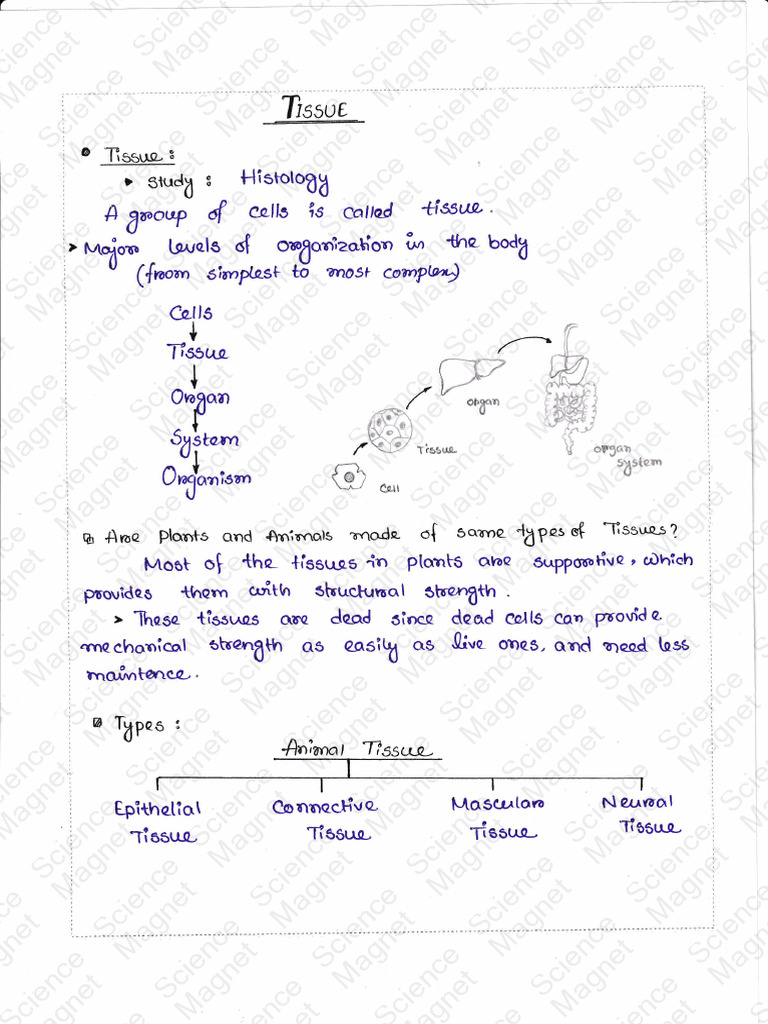 TISSUE
Tissue:
Study: Histology
A group of cells is called tissue.
Major levels of organization in the body
(from simplest to most complex)
Cells
Tissue
Organ
System
Organism
Cell
Tissue
organ
organ
system
Are Plants and Animals made of same types of Tissues?
Most of the tissues in plants are supportive, which
provides them with structural strength.
These tissues are dead since dead cells can provide
mechanical strength as easily as live ones, and need less
maintence.
Types:
Animal Tissue
Epithelial
Tissue
Connective
Tissue
Mascular
Tissue
Neural
Tissue
Science
Magnet